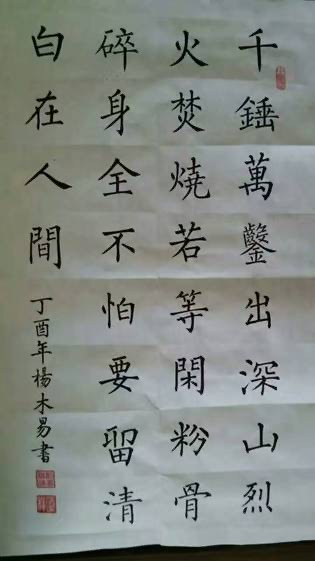 千錘萬鑿出深山烈
火焚燒若等閑粉骨
碎身全不怕要留清
白在人間
丁酉年楊木易書